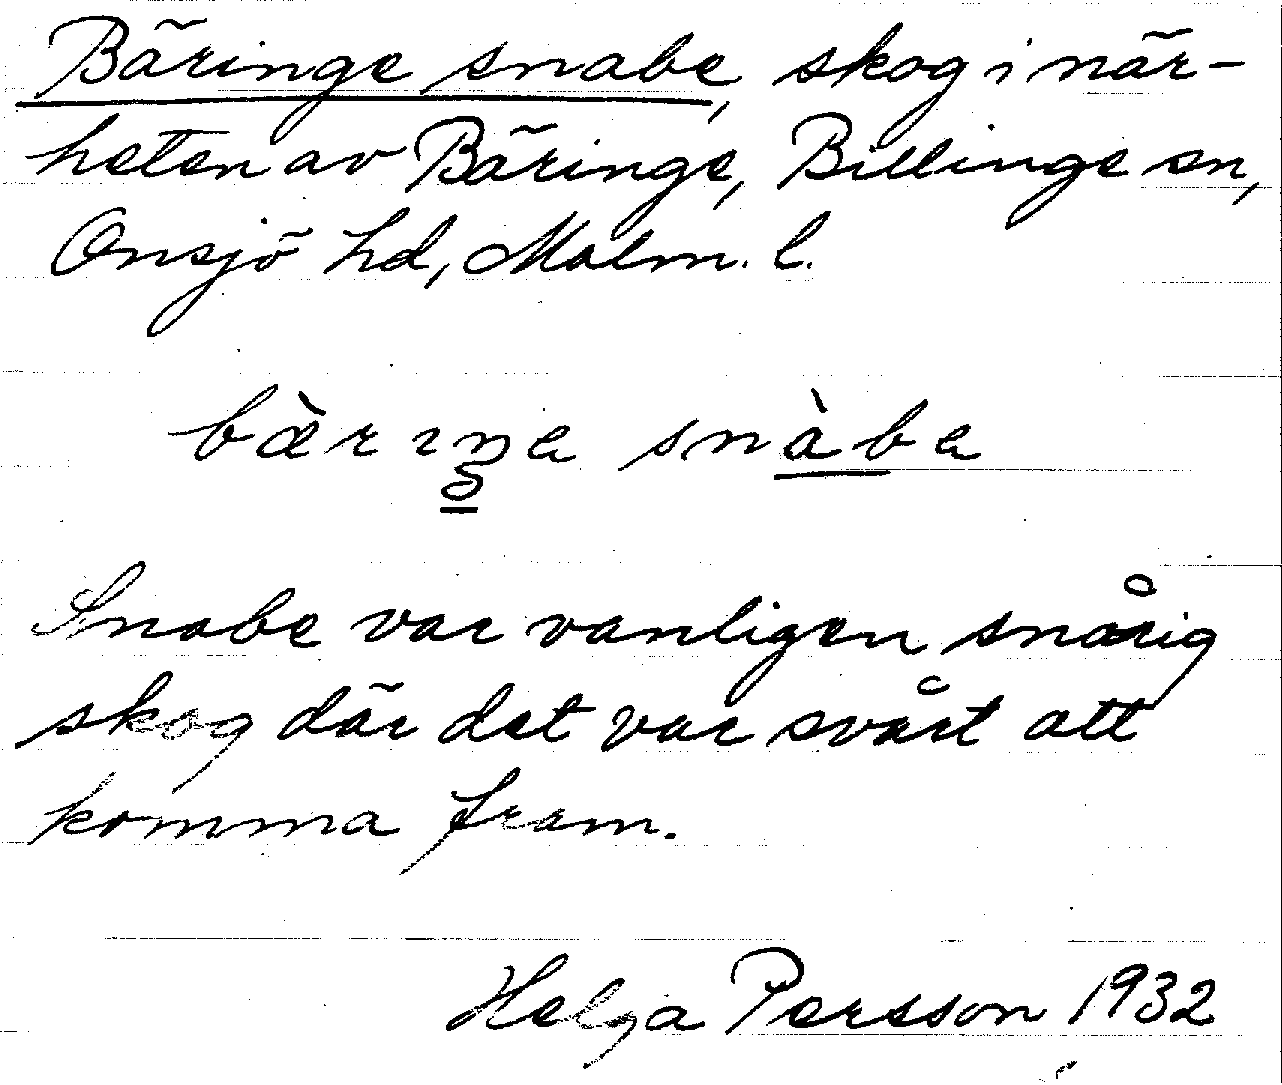 Bäringe snabe, skog i när-
heten av Bäringe, Billinge sn,
Onsjö hd, Malm. l.
bæ̀rɪŋe snàbe
Snabe var vanligen snårig
skog där det var svårt att
komma fram.
Helga Persson 1932